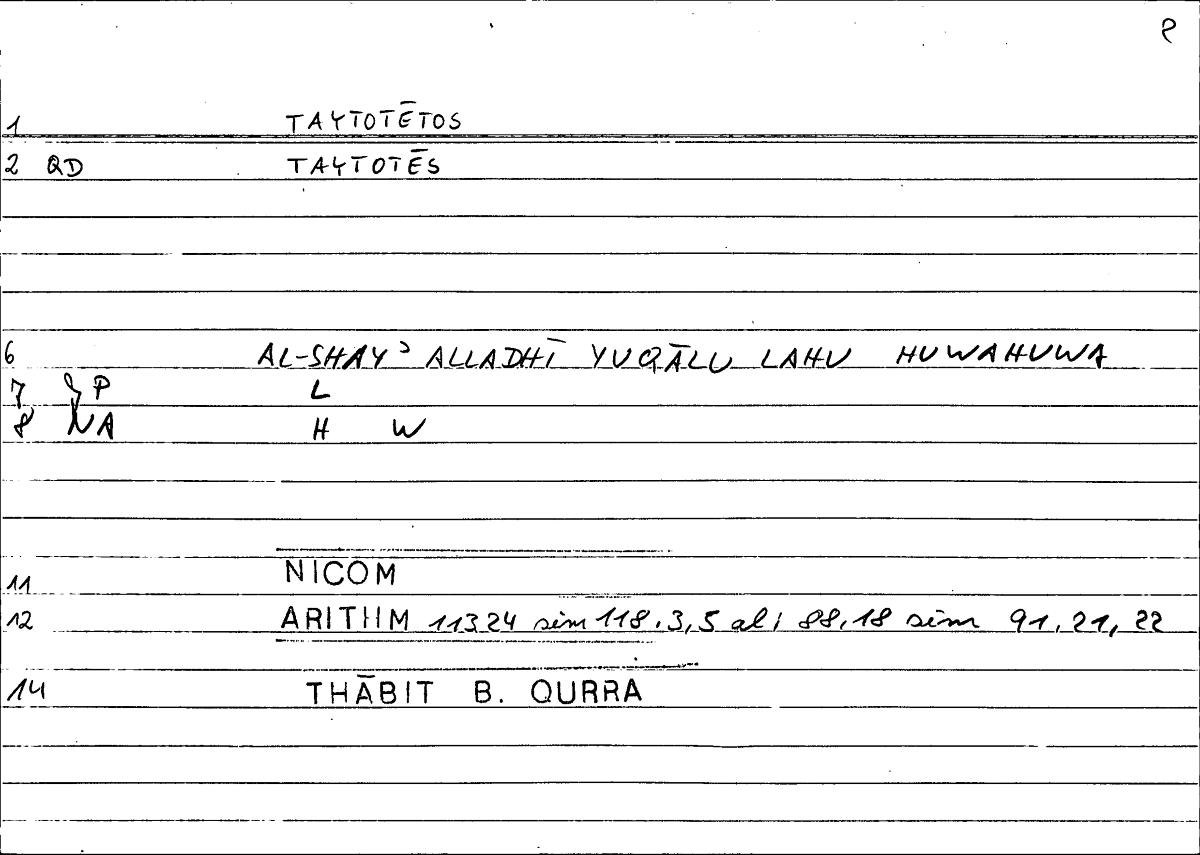 1 TAYTOTĒTOS
2 QD TAYTOTĒS
6 AL-SHAYʾ ALLADHĪ YUQĀLU LAHU HUWAHUWA
7 P L
8 NA H W
11 NICOM
12 ARITHM 113.24 sim 118.3,5 al; 88.18 sim 91.21,22
14 THĀBIT B. QURRA